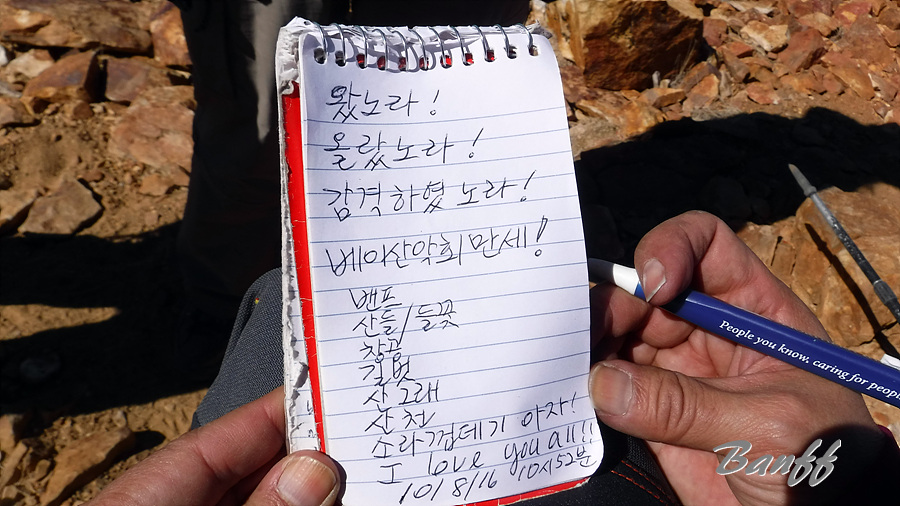 왔노라!
올랐노라!
감격하였노라!
베이산악회 만세!
밴프
산들/들꽃
창공
길벗
산그래
산천
소라껍데기 아자!
I love you all!!
10/8/16 10시52분
People you know, caring for peopl
Banff